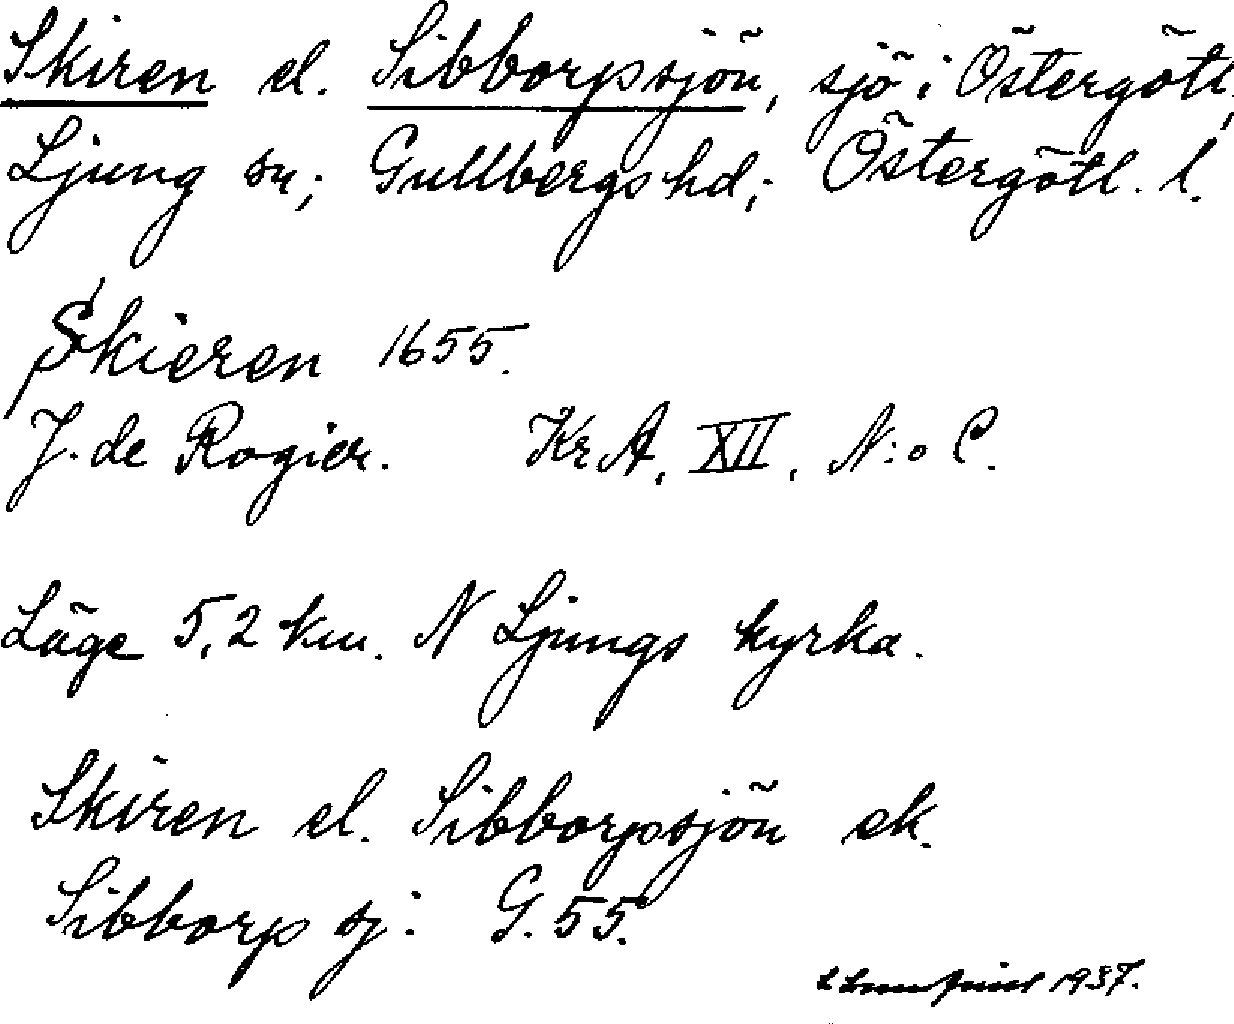 Skiren el. Sibborpsjön, sjö i Östergötl,
Ljung sn; Gullbergs hd; Östergötl. l.
Skieren 1655.
J. de Rogier. KrA, XII, N:o C.
Läge 5,2 km. N Ljungs kyrka.
Skiren el. Sibborpsjön ek.
Sibborp sj: G. 55.
1937.